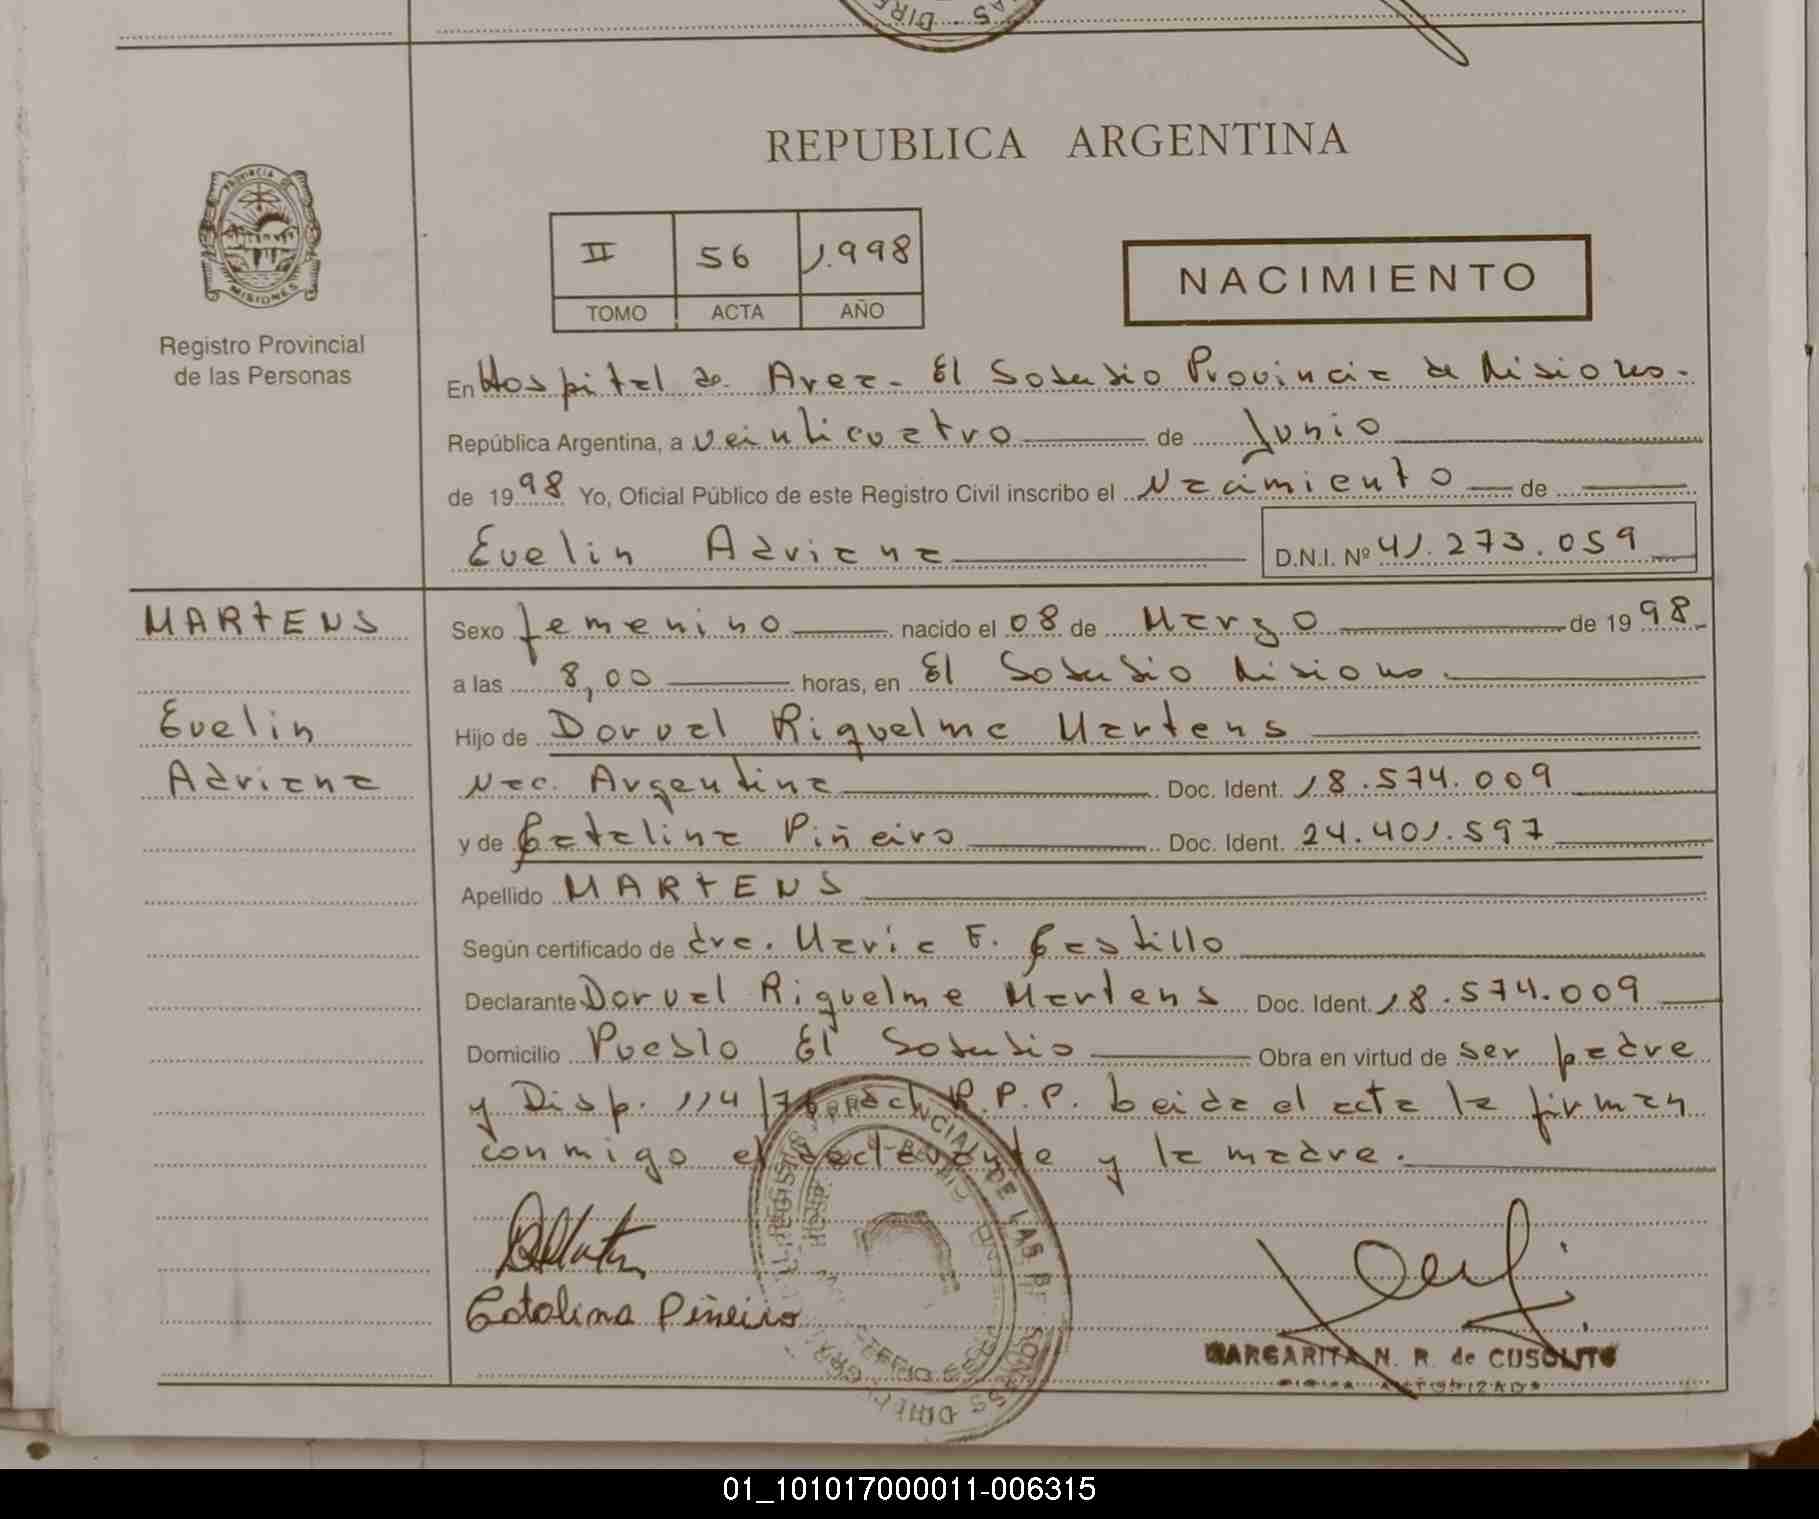 REPUBLICA ARGENTINA
PROVINCIA DE
MISIONES
Registro Provincial
de las Personas
II 56 1.998
TOMO ACTA AÑO
NACIMIENTO
En Hospital de Area - El Soberbio Provincia de Misiones.
República Argentina, a veinticuatro de Junio
de 1998 Yo, Oficial Público de este Registro Civil inscribo el Nacimiento de
Evelin Adriana D.N.I. Nº 41.273.059
MARTENS
Evelin
Adriana
Sexo femenino nacido el 08 de Marzo de 1998
a las 8,00 horas, en El Soberbio Misiones
Hijo de Dorval Riquelme Martens
Nac. Argentina Doc. Ident. 18.574.009
y de Catalina Piñeiro Doc. Ident. 24.401.597
Apellido MARTENS
Según certificado de dra. Maria F. Castillo
Declarante Dorval Riquelme Martens Doc. Ident. 18.574.009
Domicilio Pueblo El Soberbio Obra en virtud de ser padre
y Disp. 114/76 R.P.P. Leida el acta la firman
conmigo el declarante y la madre.
Catalina Piñeiro
MARGARITA N. R. de CUSOLITO
FIRMA AUTORIZADA
01_101017000011-006315